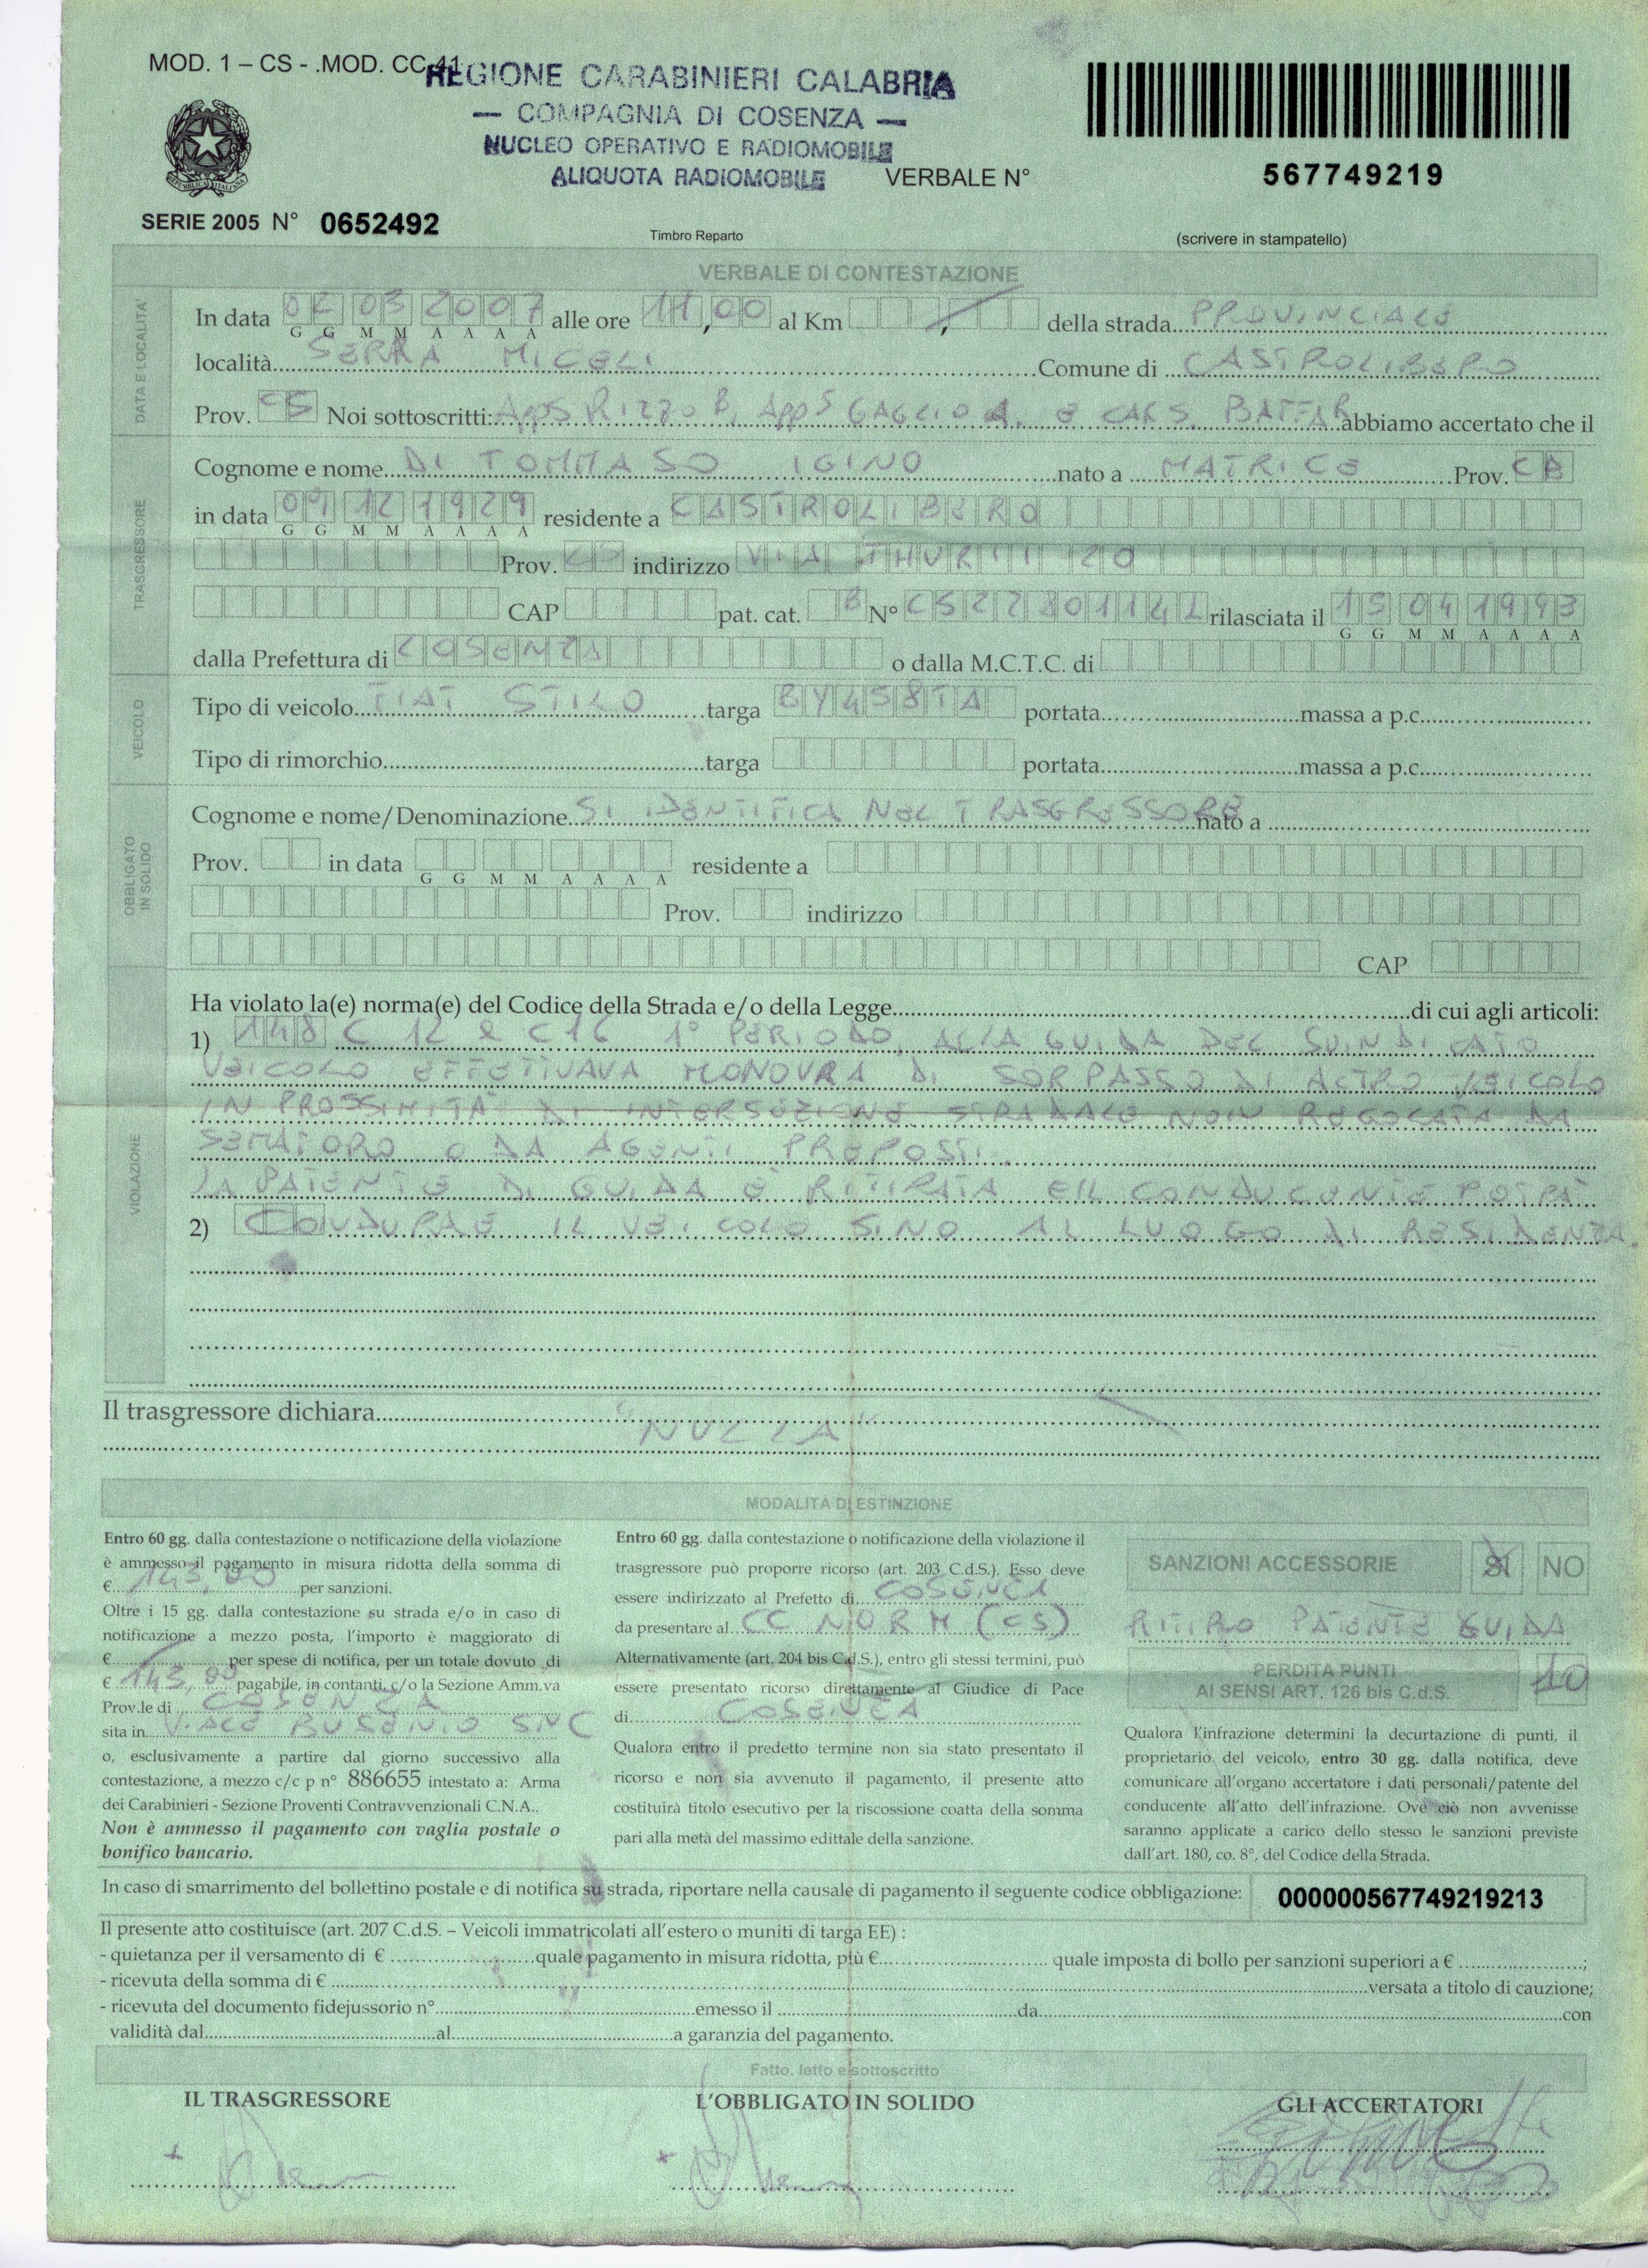 MOD. 1 – CS - .MOD. CC-41
REGIONE CARABINIERI CALABRIA
— COMPAGNIA DI COSENZA —
NUCLEO OPERATIVO E RADIOMOBILE
ALIQUOTA RADIOMOBILE VERBALE N° 567749219
SERIE 2005 N° 0652492
Timbro Reparto (scrivere in stampatello)
VERBALE DI CONTESTAZIONE
DATA E LOCALITA'
In data 02 03 2007 alle ore 11,00 al Km , della strada PROVINCIALE
G G M M A A A A
località SERRA MICELI Comune di CASTROLIBERO
Prov. CS Noi sottoscritti: AppS RIZZO B, AppS GAGLIO A. E CARS. BATTA R abbiamo accertato che il
TRASGRESSORE
Cognome e nome DI TOMMASO IGINO nato a MATRICE Prov. CB
in data 09 12 1929 residente a CASTROLIBERO
G G M M A A A A
Prov. CS indirizzo VIA THURII 20
CAP pat. cat. B N° CS2280114L rilasciata il 15 04 1993
G G M M A A A A
dalla Prefettura di COSENZA o dalla M.C.T.C. di
VEICOLO
Tipo di veicolo FIAT STILO targa BY458TA portata massa a p.c.
Tipo di rimorchio targa portata massa a p.c.
OBBLIGATO IN SOLIDO
Cognome e nome/Denominazione SI IDENTIFICA NEL TRASGRESSORE nato a
Prov. in data residente a
G G M M A A A A
Prov. indirizzo
CAP
VIOLAZIONE
Ha violato la(e) norma(e) del Codice della Strada e/o della Legge di cui agli articoli:
1) 148 C 12 e C16 1° PERIODO, ALLA GUIDA DEL SUINDICATO
VEICOLO EFFETTUAVA MONOVRA DI SORPASSO DI ALTRO VEICOLO
IN PROSSIMITÀ DI INTERSEZIONE STRADALE NON REGOLATA DA
SEMAFORO O DA AGENTI PREPOSTI.
LA PATENTE DI GUIDA È RITIRATA E IL CONDUCENTE POTRÀ
2) CONDURRE IL VEICOLO SINO AL LUOGO DI RESIDENZA.
Il trasgressore dichiara "NULLA"
MODALITÀ DI ESTINZIONE
Entro 60 gg. dalla contestazione o notificazione della violazione
è ammesso il pagamento in misura ridotta della somma di
€ 143,00 per sanzioni.
Oltre i 15 gg. dalla contestazione su strada e/o in caso di
notificazione a mezzo posta, l'importo è maggiorato di
€ per spese di notifica, per un totale dovuto di
€ 143,00 pagabile, in contanti, c/o la Sezione Amm.va
Prov.le di COSENZA
sita in VIALE BUSENTO SNC
o, esclusivamente a partire dal giorno successivo alla
contestazione, a mezzo c/c p n° 886655 intestato a: Arma
dei Carabinieri - Sezione Proventi Contravvenzionali C.N.A..
Non è ammesso il pagamento con vaglia postale o
bonifico bancario.
Entro 60 gg. dalla contestazione o notificazione della violazione il
trasgressore può proporre ricorso (art. 203 C.d.S.). Esso deve
essere indirizzato al Prefetto di COSENZA
da presentare al CC NORM (CS)
Alternativamente (art. 204 bis C.d.S.), entro gli stessi termini, può
essere presentato ricorso direttamente al Giudice di Pace
di COSENZA
Qualora entro il predetto termine non sia stato presentato il
ricorso e non sia avvenuto il pagamento, il presente atto
costituirà titolo esecutivo per la riscossione coatta della somma
pari alla metà del massimo edittale della sanzione.
SANZIONI ACCESSORIE SI NO
RITIRO PATENTE GUIDA
PERDITA PUNTI
AI SENSI ART. 126 bis C.d.S. 10
Qualora l'infrazione determini la decurtazione di punti, il
proprietario del veicolo, entro 30 gg. dalla notifica, deve
comunicare all'organo accertatore i dati personali/patente del
conducente all'atto dell'infrazione. Ove ciò non avvenisse
saranno applicate a carico dello stesso le sanzioni previste
dall'art. 180, co. 8°, del Codice della Strada.
In caso di smarrimento del bollettino postale e di notifica su strada, riportare nella causale di pagamento il seguente codice obbligazione: 000000567749219213
Il presente atto costituisce (art. 207 C.d.S. – Veicoli immatricolati all'estero o muniti di targa EE) :
- quietanza per il versamento di € quale pagamento in misura ridotta, più € quale imposta di bollo per sanzioni superiori a € ;
- ricevuta della somma di € versata a titolo di cauzione;
- ricevuta del documento fidejussorio n° emesso il da con
validità dal al a garanzia del pagamento.
Fatto, letto e sottoscritto
IL TRASGRESSORE L'OBBLIGATO IN SOLIDO GLI ACCERTATORI